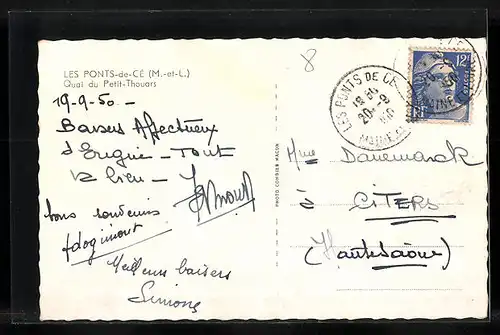 LES PONTS-de-CÉ (M.-et-L.)
Quai du Petit-Thouars
8
19-9-50 -
Baisers Affectueux
d'Érigné - Tout
bons souvenirs
Meilleurs baisers
Simone
PHOTO COMBIER MACON
LES PONTS DE CÉ
18 30
20 - 9
1950
12F
Mme Danemarck
à
CITERS
(Haute Saône)